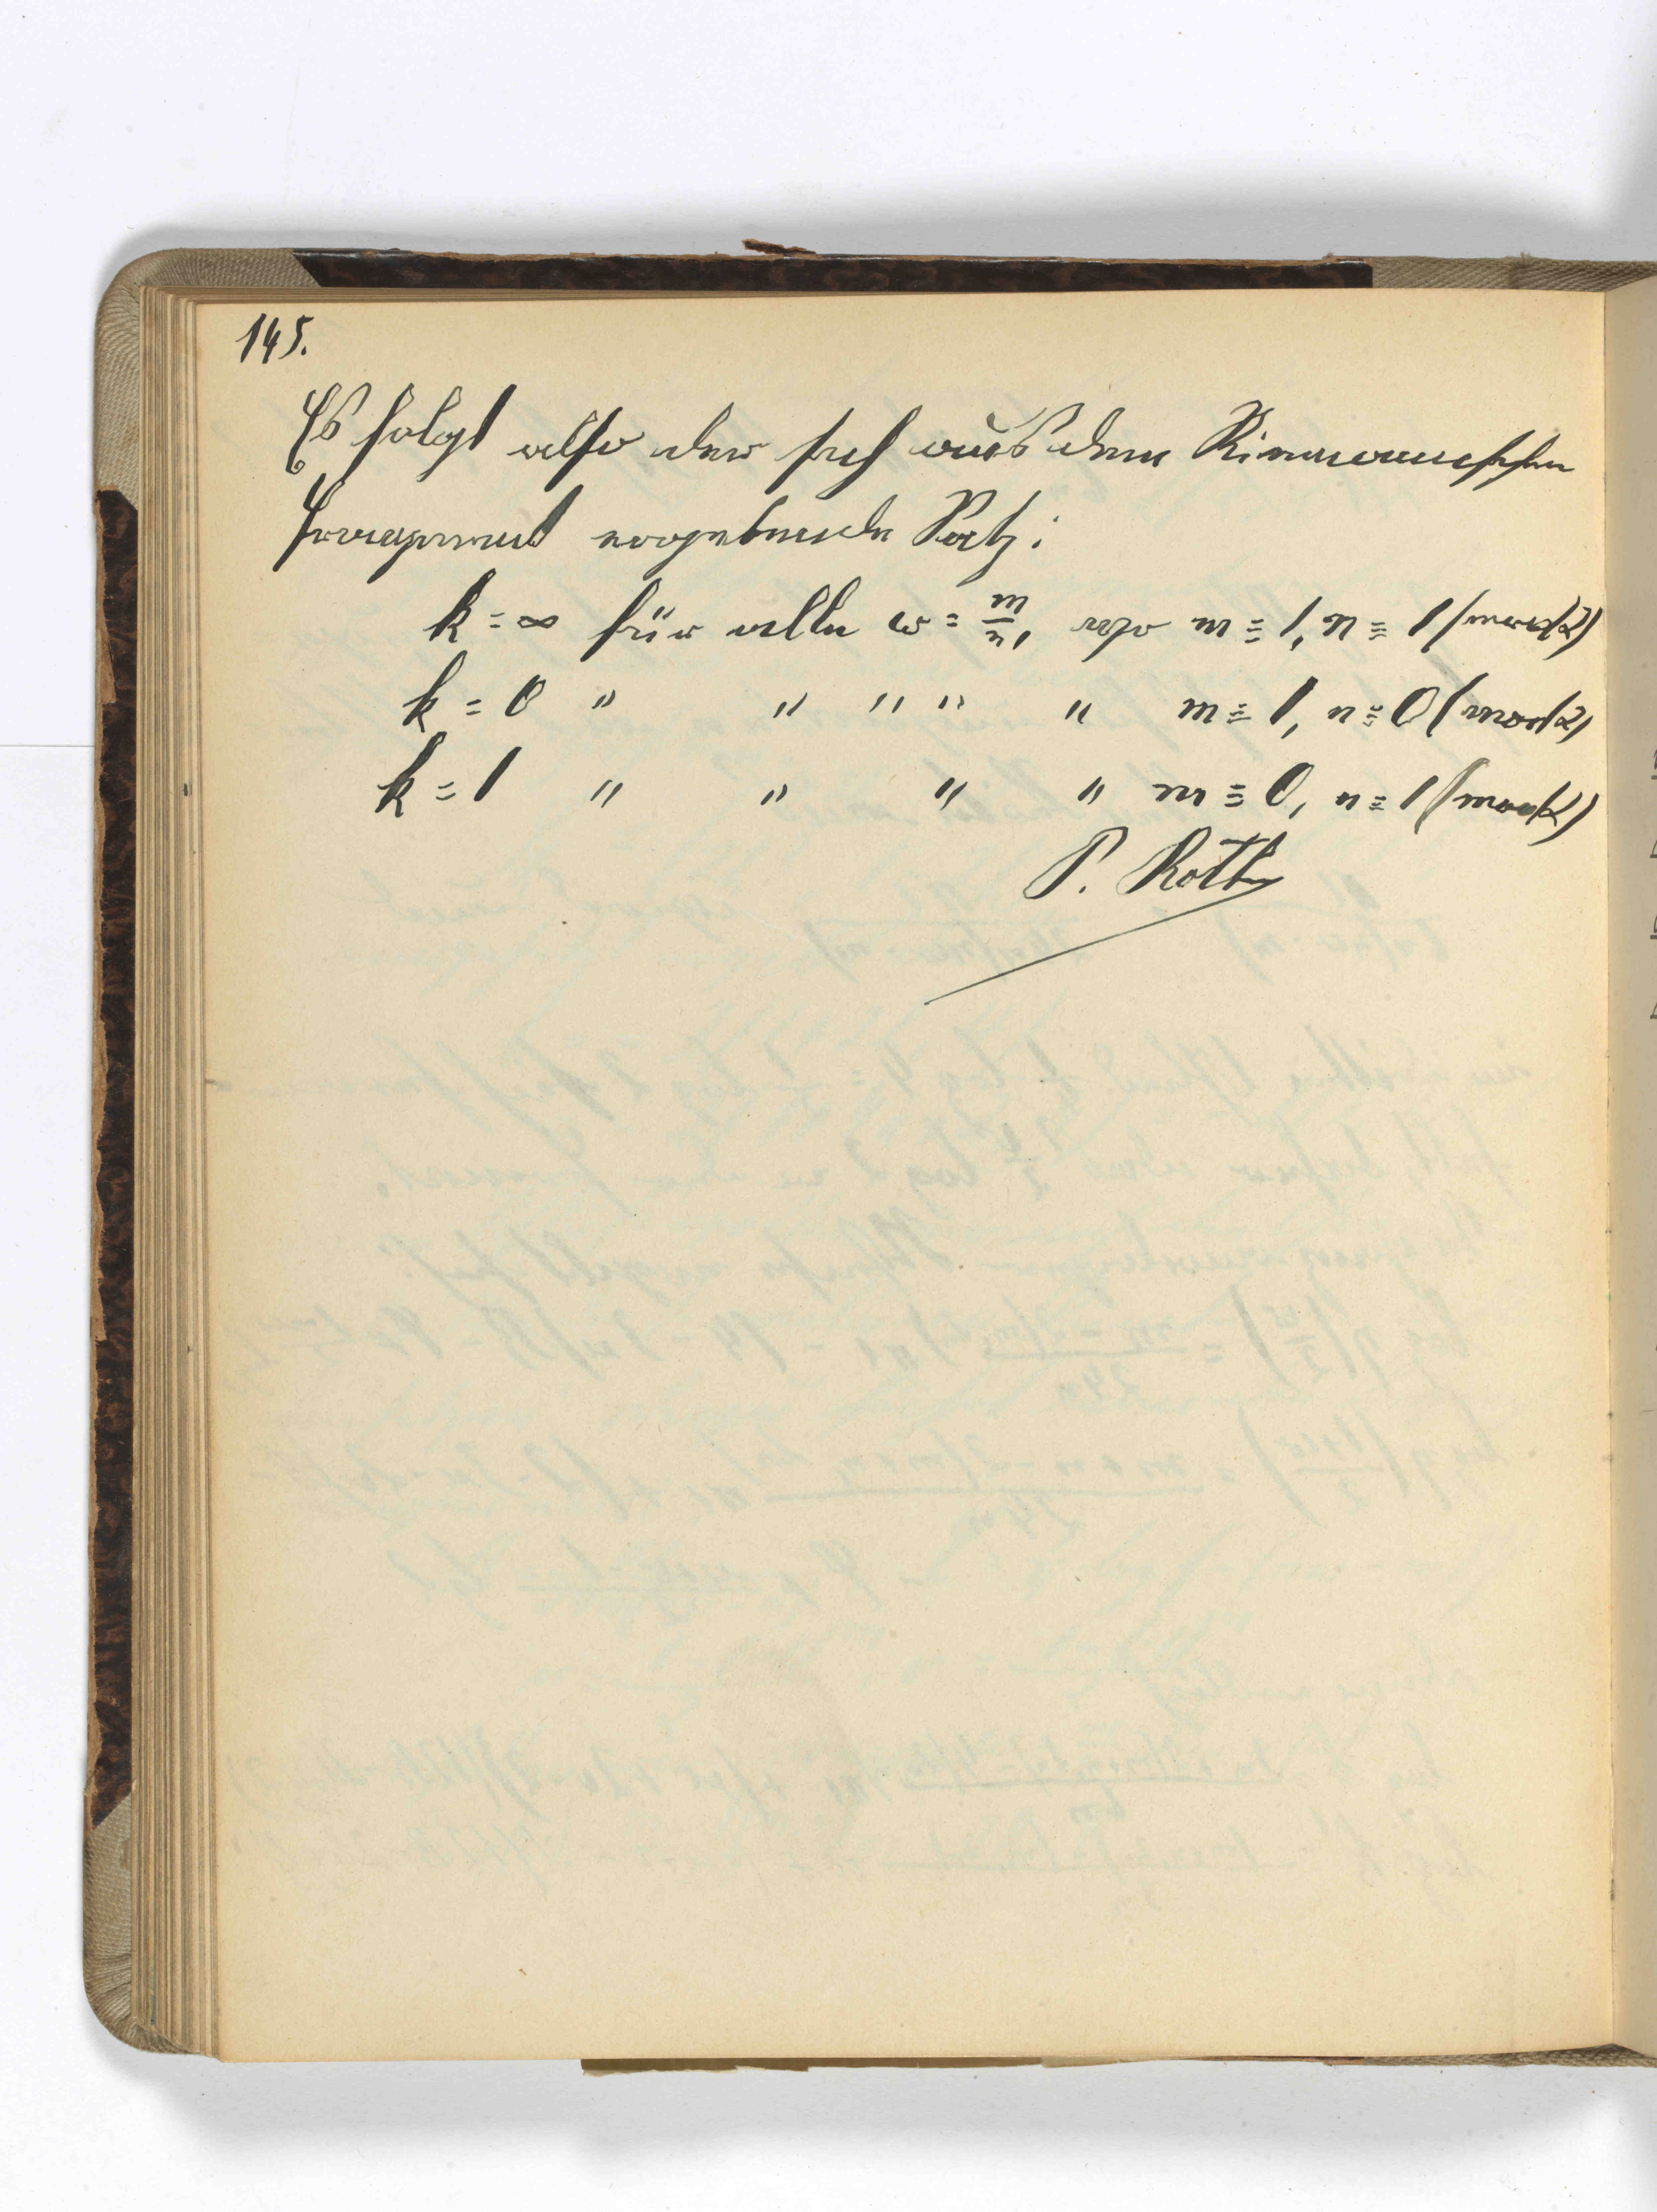 145.
Es folgt also der sich aus dem Riemannschen
Fragment ergebende Satz:
k = ∞ für alle ω = m/n, wo m ≡ 1, n ≡ 1 (mod 2)
k = 0 " " " " " m ≡ 1, n ≡ 0 (mod 2)
k = 1 " " " " m ≡ 0, n ≡ 1 (mod 2)
P. Roth